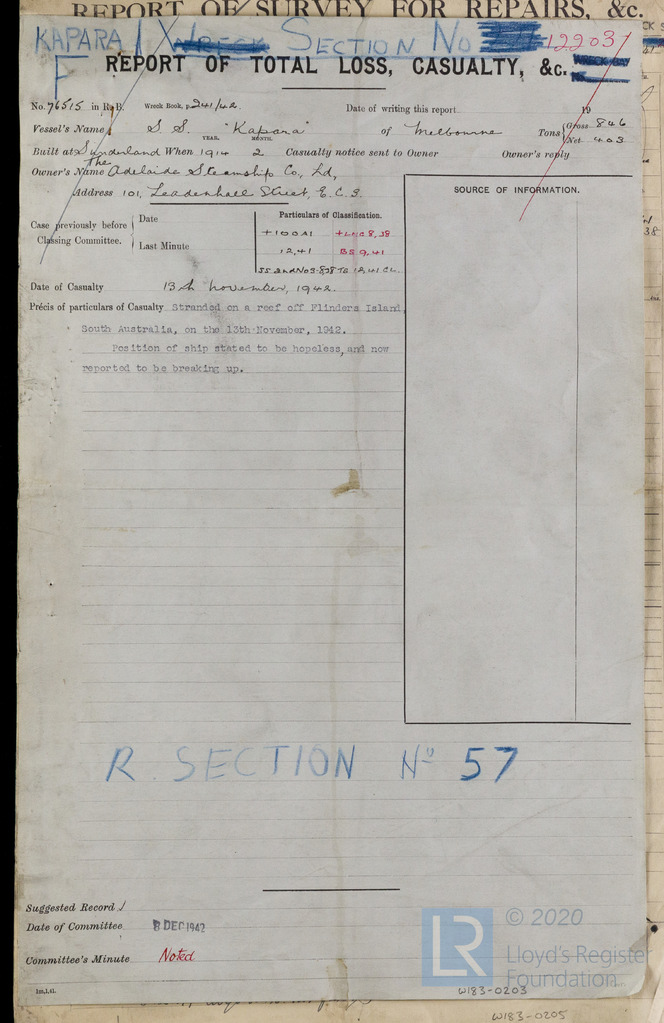 REPORT OF SURVEY FOR REPAIRS, &c.
KAPARA SECTION No 12203
F
REPORT OF TOTAL LOSS, CASUALTY, &c.
No. 76515 in R.B. Wreck Book, p. 241/42. Date of writing this report 19
Vessel's Name S.S. "Kapara" of Melbourne Tons Gross 846
YEAR. MONTH. Net 403
Built at Sunderland When 1914 2 Casualty notice sent to Owner Owner's reply
Owner's Name The Adelaide Steamship Co., Ld,
Address 101, Leadenhall Street, E.C.3.
SOURCE OF INFORMATION.
Case previously before Classing Committee. Date
Last Minute
Particulars of Classification.
+100A1 +LMC 8,38
12,41 BS 9,41
Date of Casualty 13th November, 1942.
Précis of particulars of Casualty Stranded on a reef off Flinders Island,
South Australia, on the 13th November, 1942.
Position of ship stated to be hopeless, and now
reported to be breaking up.
R. SECTION No 57
Suggested Record
Date of Committee 8 DEC 1942
Committee's Minute Noted
1m,1,41.
LR © 2020
Lloyd's Register
Foundation
W183-0203
W183-0205